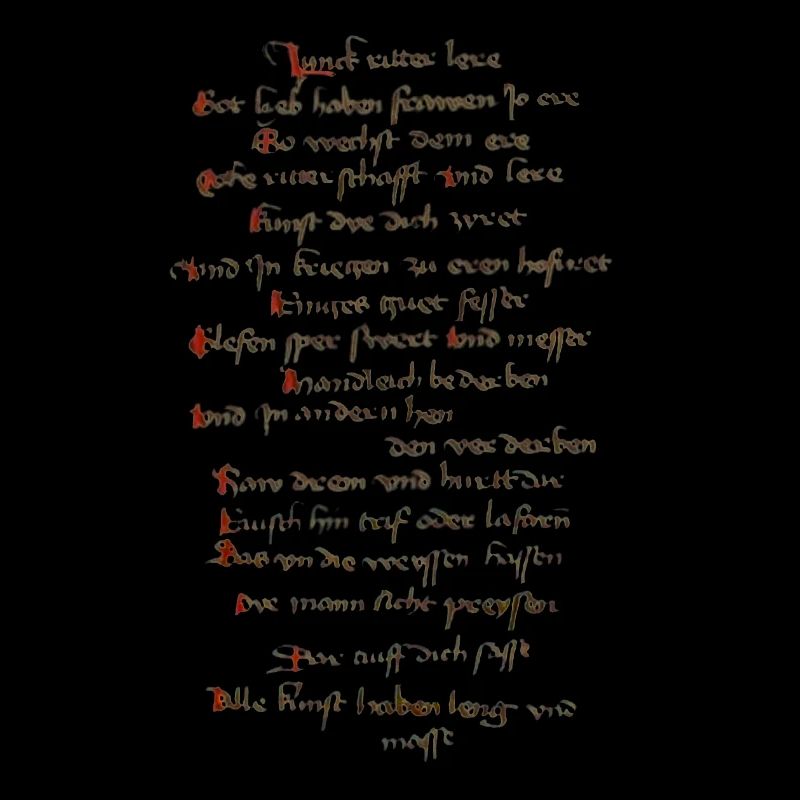 Junck ritter lere
Got lieb haben frawen jo ere
So wechst dein ere
Vbe ritterschafft vnd lere
kunst dye dich zyret
vnd jn kriegen zu eren hofiret
Ringes guet fesser
Glefen sper swert vnd messer
Mandleich bederben
Vnd jn andern hen
den verderben
Haw drein vnd hurtt dar
Rausch hin trif oder la farn
Das yn die weyssen hassen
Dye mann sicht preysen
Dar auff dich fasse
Alle kunst haben leng vnd
masse